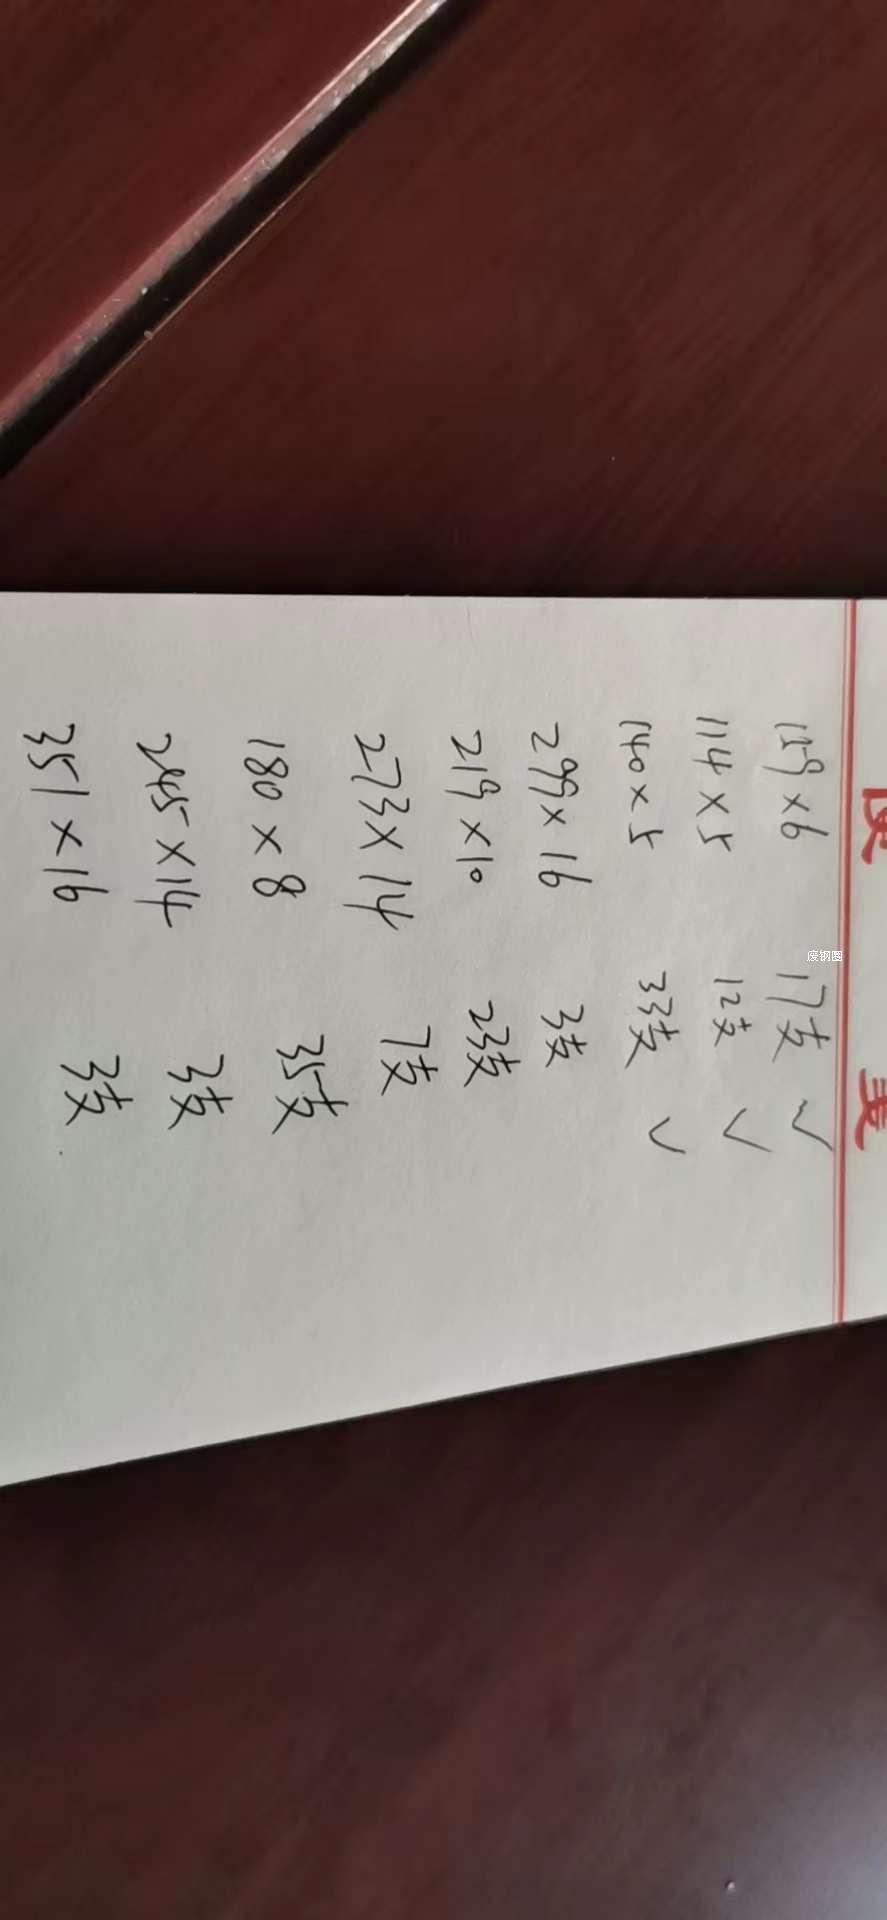 159×6 17支 ✓
114×5 12支 ✓
140×5 33支 ✓
299×16 3支
219×10 23支
273×14 7支
180×8 35支
245×14 3支
351×16 3支
废钢圈